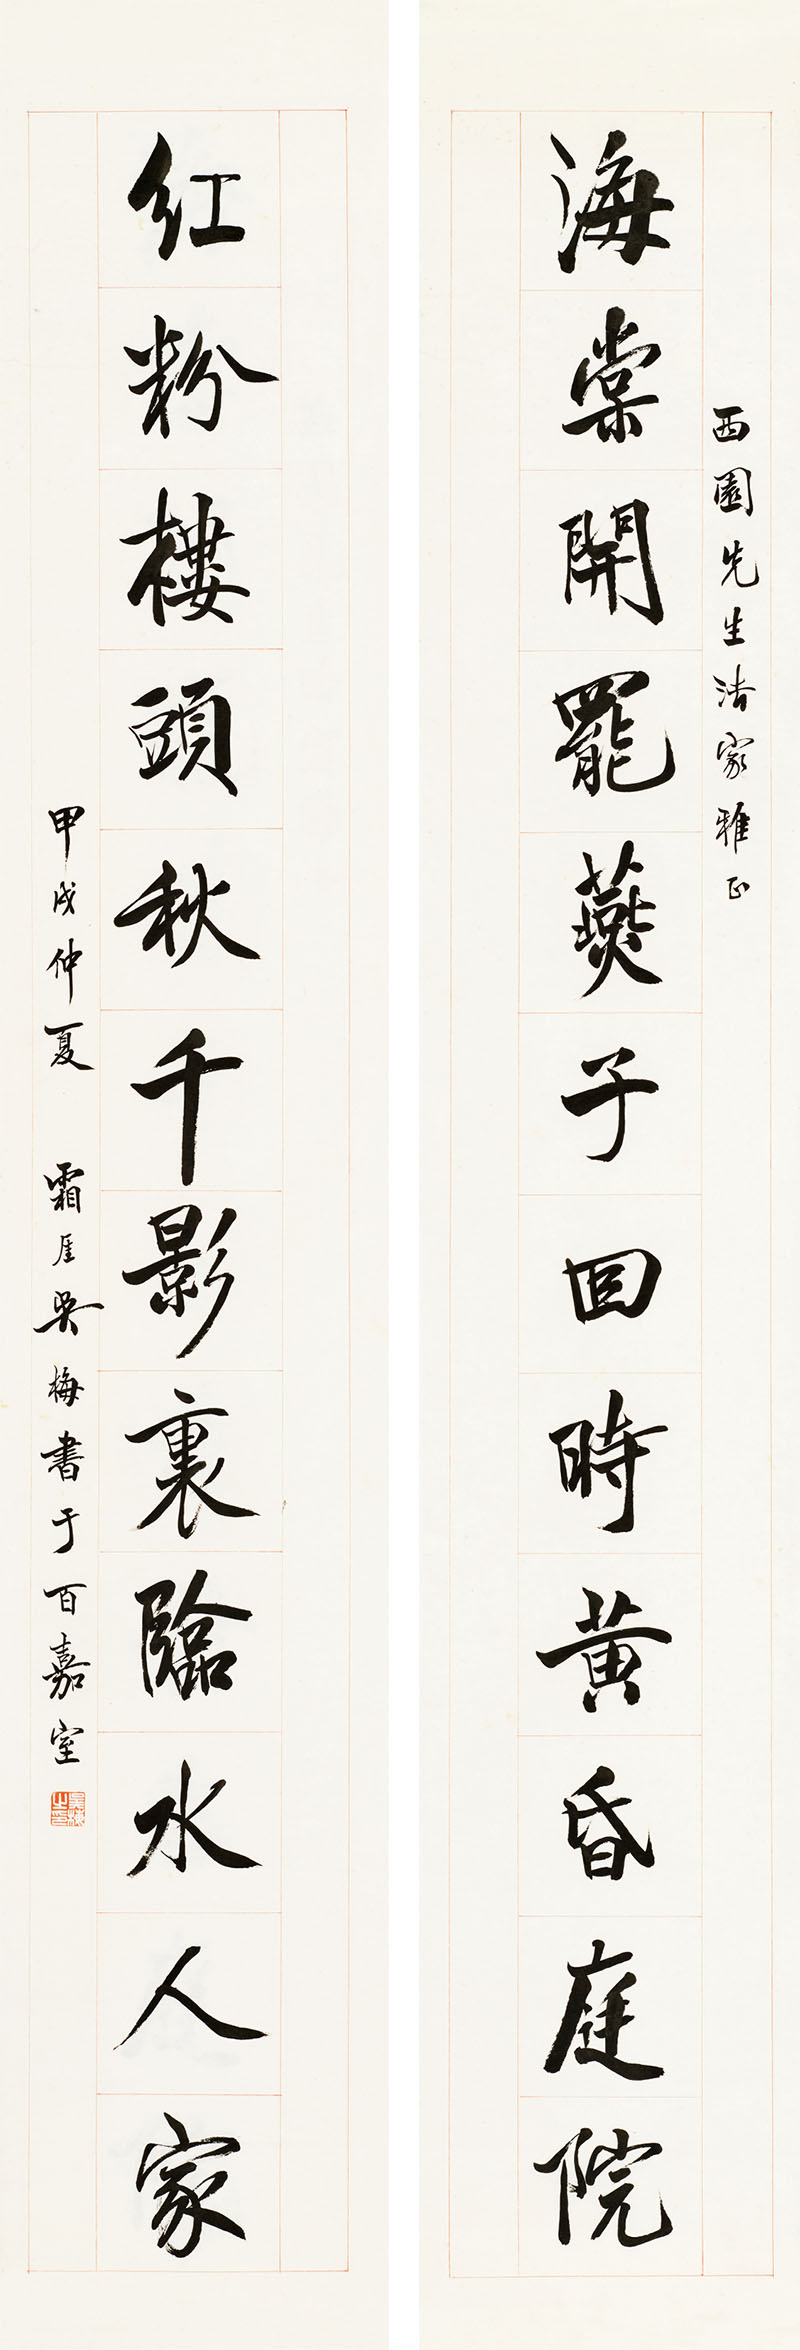 西園先生法家雅正
海棠開罷燕子回時黄昏庭院
紅粉樓頭秋千影裏臨水人家
甲戌仲夏 霜厓吳梅書于百嘉室
吳梅之印